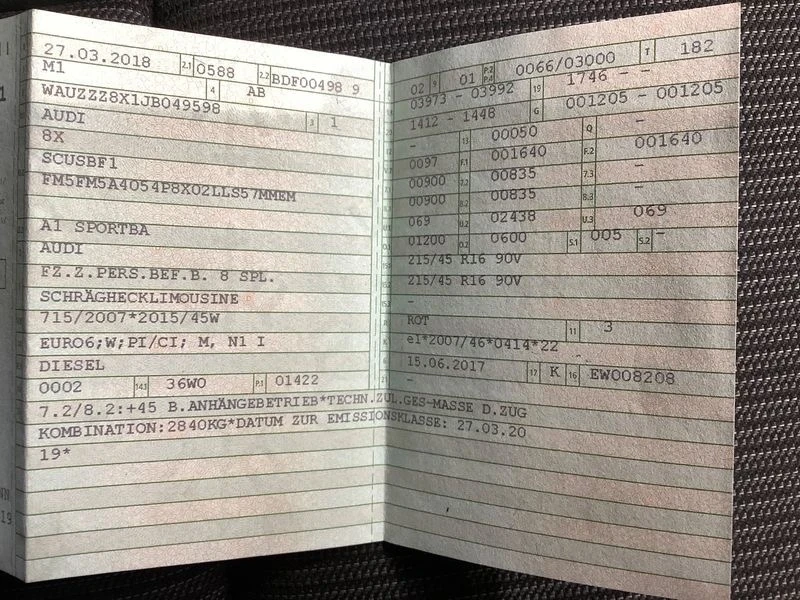 27.03.2018 2.1 0588 2.2 BDF00498 9
M1 4 AB
WAUZZZ8X1JB049598
AUDI 3 1
8X
SCUSBF1
FM5FM5A4054P8X02LLS57MMEM
A1 SPORTBA
AUDI
FZ.Z.PERS.BEF.B. 8 SPL.
SCHRÄGHECKLIMOUSINE
715/2007*2015/45W
EURO6;W;PI/CI; M, N1 I
DIESEL
0002 14.1 36W0 P.1 01422
7.2/8.2:+45 B.ANHÄNGEBETRIEB*TECHN.ZUL.GES-MASSE D.ZUG
KOMBINATION:2840KG*DATUM ZUR EMISSIONSKLASSE: 27.03.20
19*
02 9 01 P.2 P.4 0066/03000 T 182
03973 - 03992 19 1746 - -
1412 - 1448 G 001205 - 001205
- 13 00050 Q -
0097 F.1 001640 F.2 001640
00900 7.2 00835 7.3 -
00900 8.2 00835 8.3 -
069 U.2 02438 U.3 069
01200 O.2 0600 S.1 005 S.2 -
215/45 R16 90V
215/45 R16 90V
-
ROT 11 3
e1*2007/46*0414*22
15.06.2017 17 K 16 EW008208
-